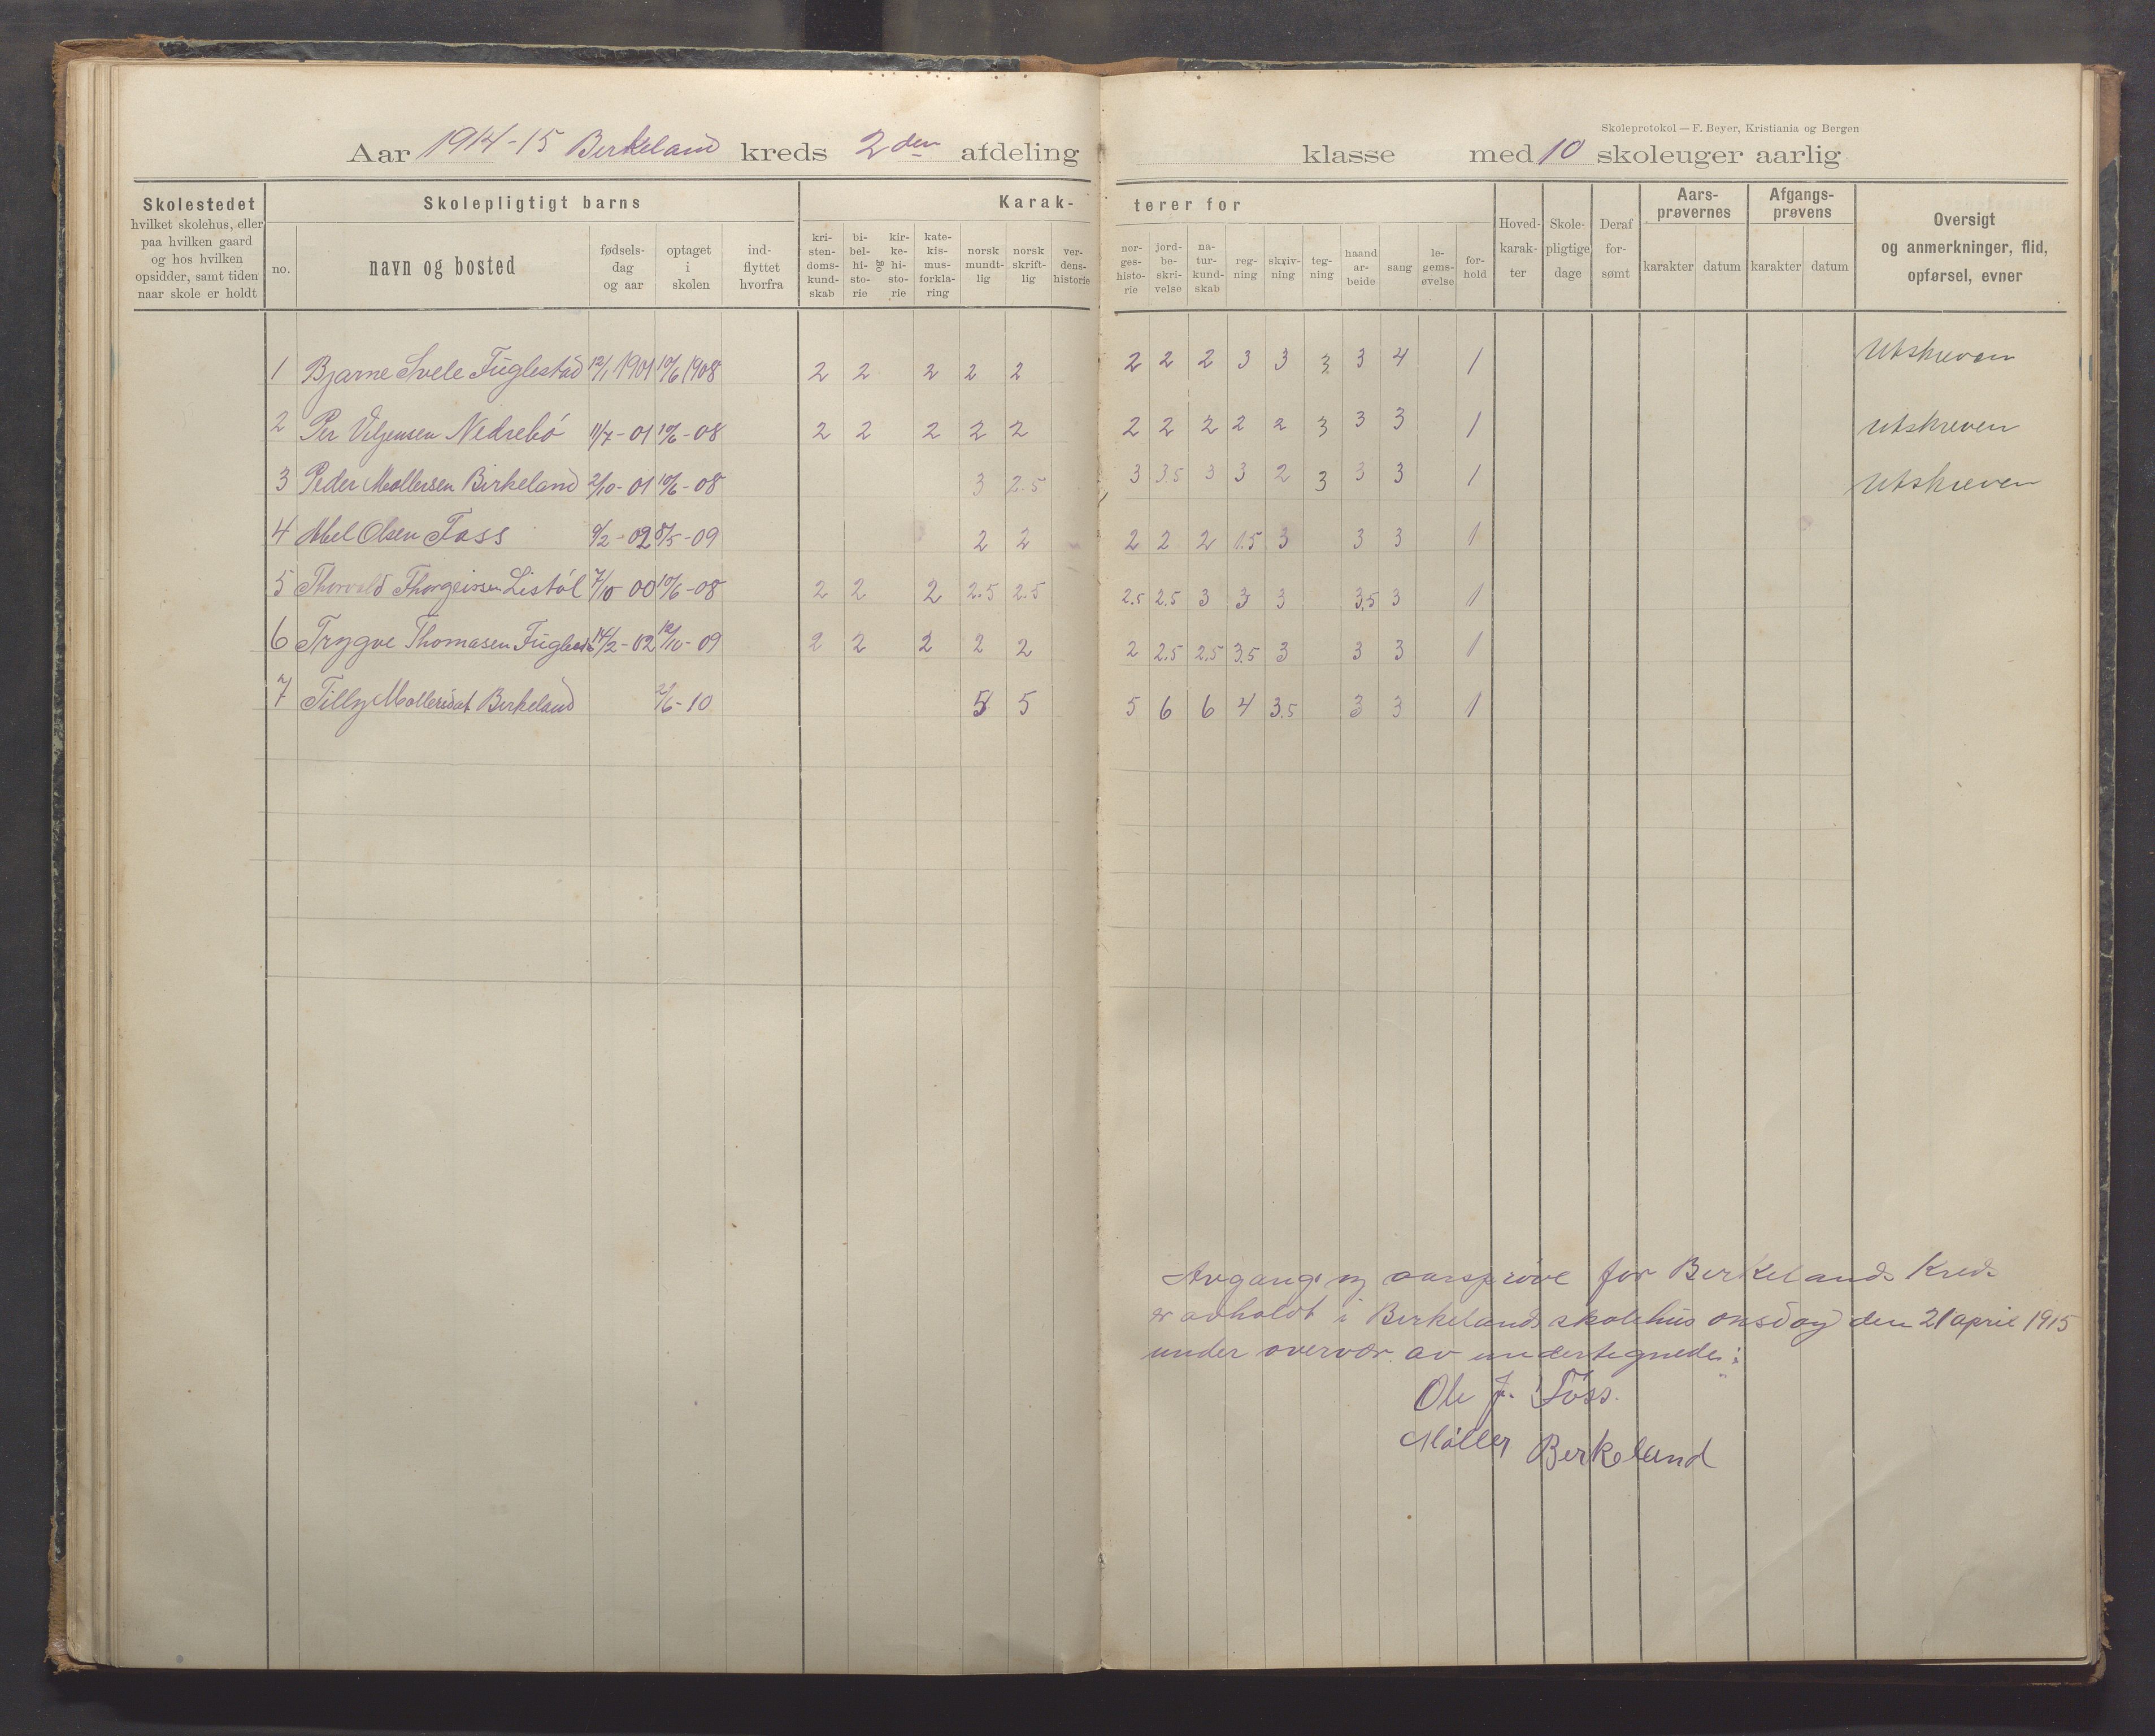 Skoleprotokol — F. Beyer, Kristiania og Bergen
Aar 1914-15 Birkeland kreds 2den afdeling klasse med 10 skoleuger aarlig
Skolestedet
hvilket skolehus, eller
paa hvilken gaard
og hos hvilken
opsidder, samt tiden
naar skole er holdt
Skolepligtigt barns
no.
navn og bosted
fødsels-
dag
og aar
optaget
i
skolen
ind-
flyttet
hvorfra
Karak-
terer for
kri-
sten-
doms-
kund-
skab
bi-
bel-
hi-
sto-
rie
og
kir-
ke-
hi-
sto-
rie
kate-
kis-
mus-
forkla-
ring
norsk
mundt-
lig
norsk
skrift-
lig
ver-
dens-
historie
nor-
ges-
histo-
rie
jord-
be-
skri-
velse
na-
tur-
kund-
skab
reg-
ning
skriv-
ning
teg-
ning
haand
ar-
beide
sang
le-
gems-
øvelse
for-
hold
Hoved-
karak-
ter
Skole-
pligtige
dage
Deraf
for-
sømt
Aars-
prøvernes
karakter datum
Afgangs-
prøvens
karakter datum
Oversigt
og anmerkninger, flid,
opførsel, evner
1 Bjarne Svele Fuglestad 12/1 1901 10/6 1908 2 2 2 2 2 2 2 2 3 3 3 3 4 1 Utskreven
2 Per Viljensen Nedrebó 11/7-01 10/6-08 2 2 2 2 2 2 2 2 2 2 3 3 3 1 Utskreven
3 Peder Mollersen Birkeland 2/10-01 10/6-08 3 2.5 3 3.5 3 3 2 3 3 3 1 Utskreven
4 Abel Olsen Foss 9/2-02 8/5-09 2 2 2 2 2 1.5 3 3 3 1
5 Thorvald Thorgeirsen Listól 7/10 00 10/6-08 2 2 2 2.5 2.5 2.5 2.5 3 3 3 3.5 3 1
6 Trygve Thomasen Fuglestad 14/2-02 12/10-09 2 2 2 2 2 2 2.5 2.5 3.5 3 3 3 1
7 Tilly Mollersdat Birkeland /6-10 5 5 5 6 6 4 3.5 3 3 1
Avgangs og aarsprøve for Berkelands Kreds
er avholdt i Berkelands skolehus onsdag den 21 april 1915
under overvær av undertegnede:
Ole J. Foss.
Móller Berkeland